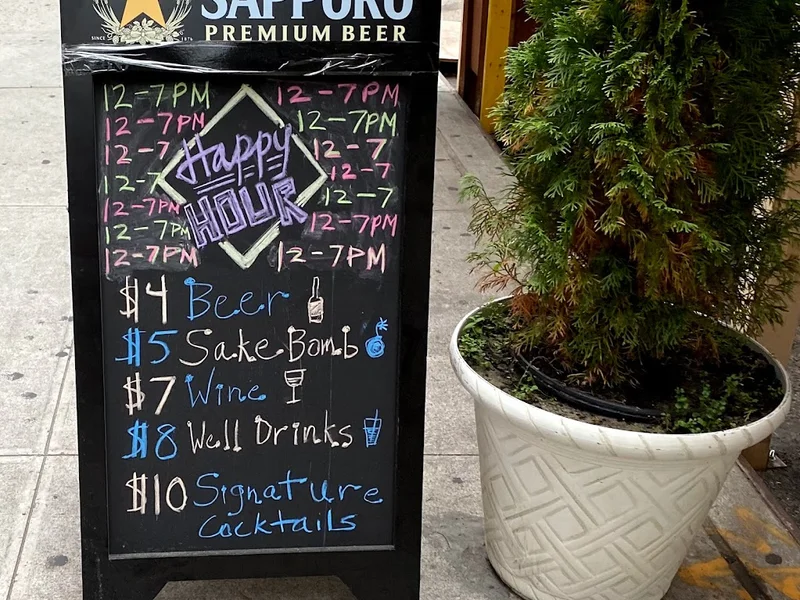 SAPPORO
SINCE 1876
PREMIUM BEER
12-7PM 12-7PM
12-7PM 12-7PM
12-7 12-7
12-7 12-7
12-7PM 12-7
12-7PM 12-7PM
12-7PM 12-7PM
Happy
HOUR
$4 Beer
$5 Sake Bomb
$7 Wine
$8 Well Drinks
$10 Signature
Cocktails